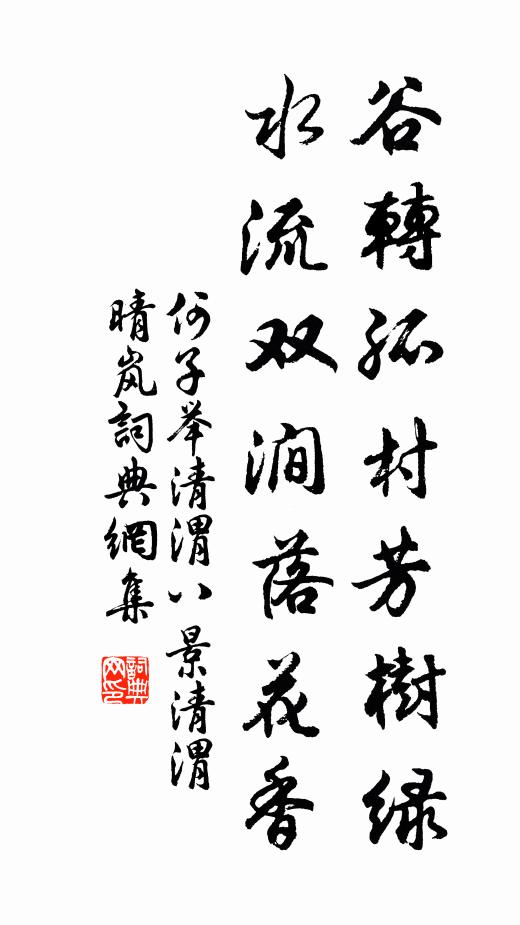 谷轉孤村芳樹绿
水流双澗落花香
何子举清渭八景清渭
晴岚詞典網集
詞典
网印